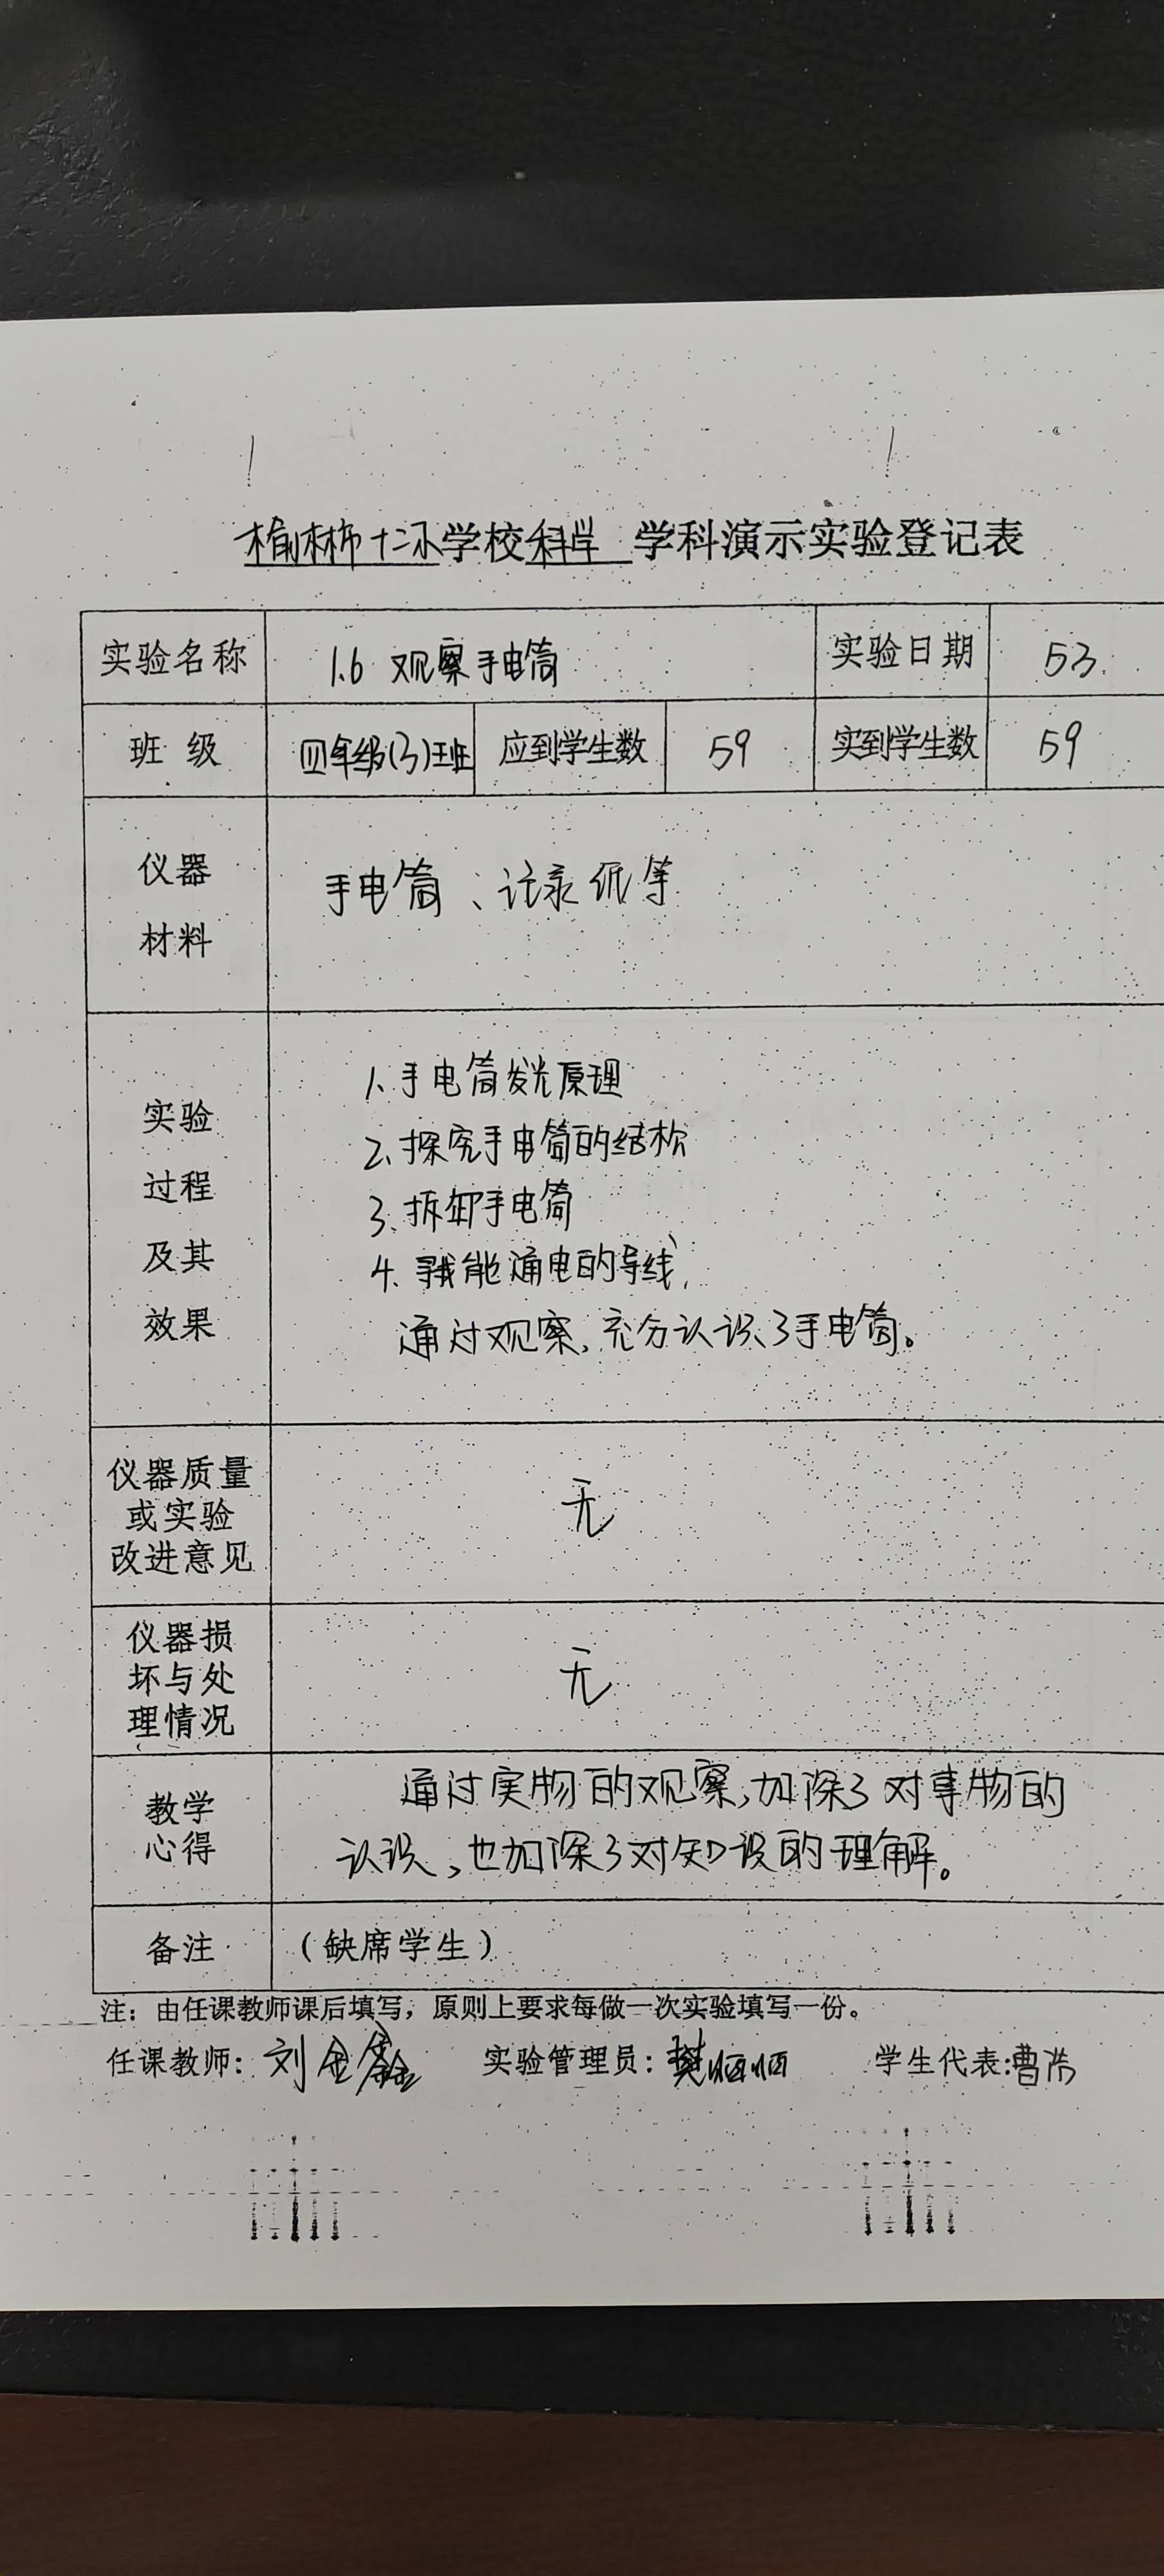 榆林市十二小学校科学 学科演示实验登记表
实验名称 1.6 观察手电筒 实验日期 5.3.
班级 四年级(3)班 应到学生数 59 实到学生数 59
仪器
材料
手电筒、记录纸等
实验
过程
及其
效果
1.手电筒发光原理
2.探究手电筒的结构
3.拆卸手电筒
4.寻找能通电的导线,
通过观察,充分认识了手电筒。
仪器质量
或实验
改进意见
无
仪器损
坏与处
理情况
无
教学
心得
通过实物的观察,加深了对事物的
认识,也加深了对知识的理解。
备注 (缺席学生)
注:由任课教师课后填写,原则上要求每做一次实验填写一份。
任课教师:刘金鑫 实验管理员:樊 学生代表:曹